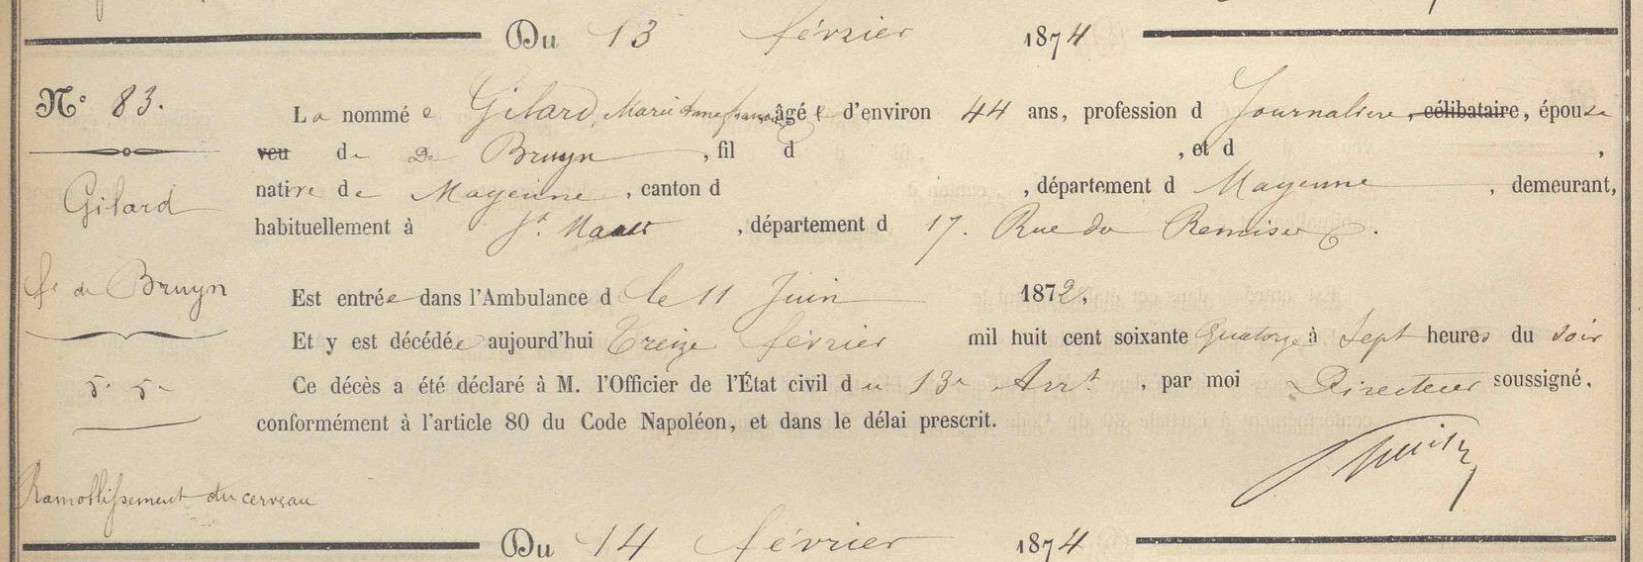 Du 13 février 1874
N° 83.
La nommée Gilard, Marie Anne âgée d'environ 44 ans, profession d Journalière, célibataire, épouse
veu de De Bruyn, fil d , et d ,
native de Mayenne, canton d , département d Mayenne, demeurant,
Gilard
habituellement à St. , département d 17. Rue du
fe de Bruyn
Est entrée dans l'Ambulance d le 11 Juin 1872.
Et y est décédée aujourd'hui Treize février mil huit cent soixante Quatorze à Sept heures du soir
5e 5n
Ce décès a été déclaré à M. l'Officier de l'État civil du 13e Arrt. , par moi Directeur soussigné,
conformément à l'article 80 du Code Napoléon, et dans le délai prescrit.
Ramollissement du cerveau
Du 14 février 1874